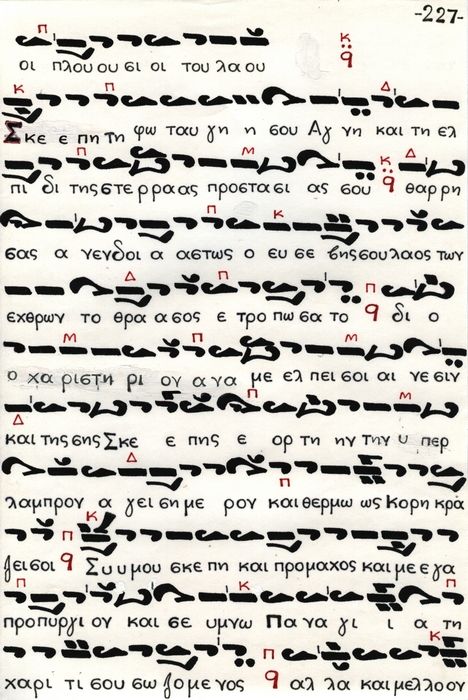 -227-
Π Κ
οι πλου ου σι οι του λα ου q
Κ Π Δ
Σκε ε πη τη φω ταυ γη η σου Αγ νη και τη ελ
Π Μ Κ Δ
πι δι της στε ρρα ας προ στα σι ας σου q θαρ ρη
Π Κ
σας α γεν δοι α αστως ο ευ σε βης σου λαος των
Δ Π Π
εχθρων το θρα α σος ε τρο πω σα το q δι ο
Μ Π Μ
ο χα ρι στη ρι ον α να με ελ πει σοι αι νε σιν
Π Μ
Δ
και της σης Σκε ε πης ε ορ τη ην την υ περ
Δ Π
λαμπρον α γει ση με ρον και θερμω ως Κο ρη κρα
Κ
ζει σοι Π q Συ υ μου σκε πη και προμαχος και με ε γα
Π Κ Π
προ πυργι ον και σε υμνω Πα να γι ι α τη
Π Κ
χα ρι τι σου σω ζο με νος Π q αλ λα και μελ λο ον